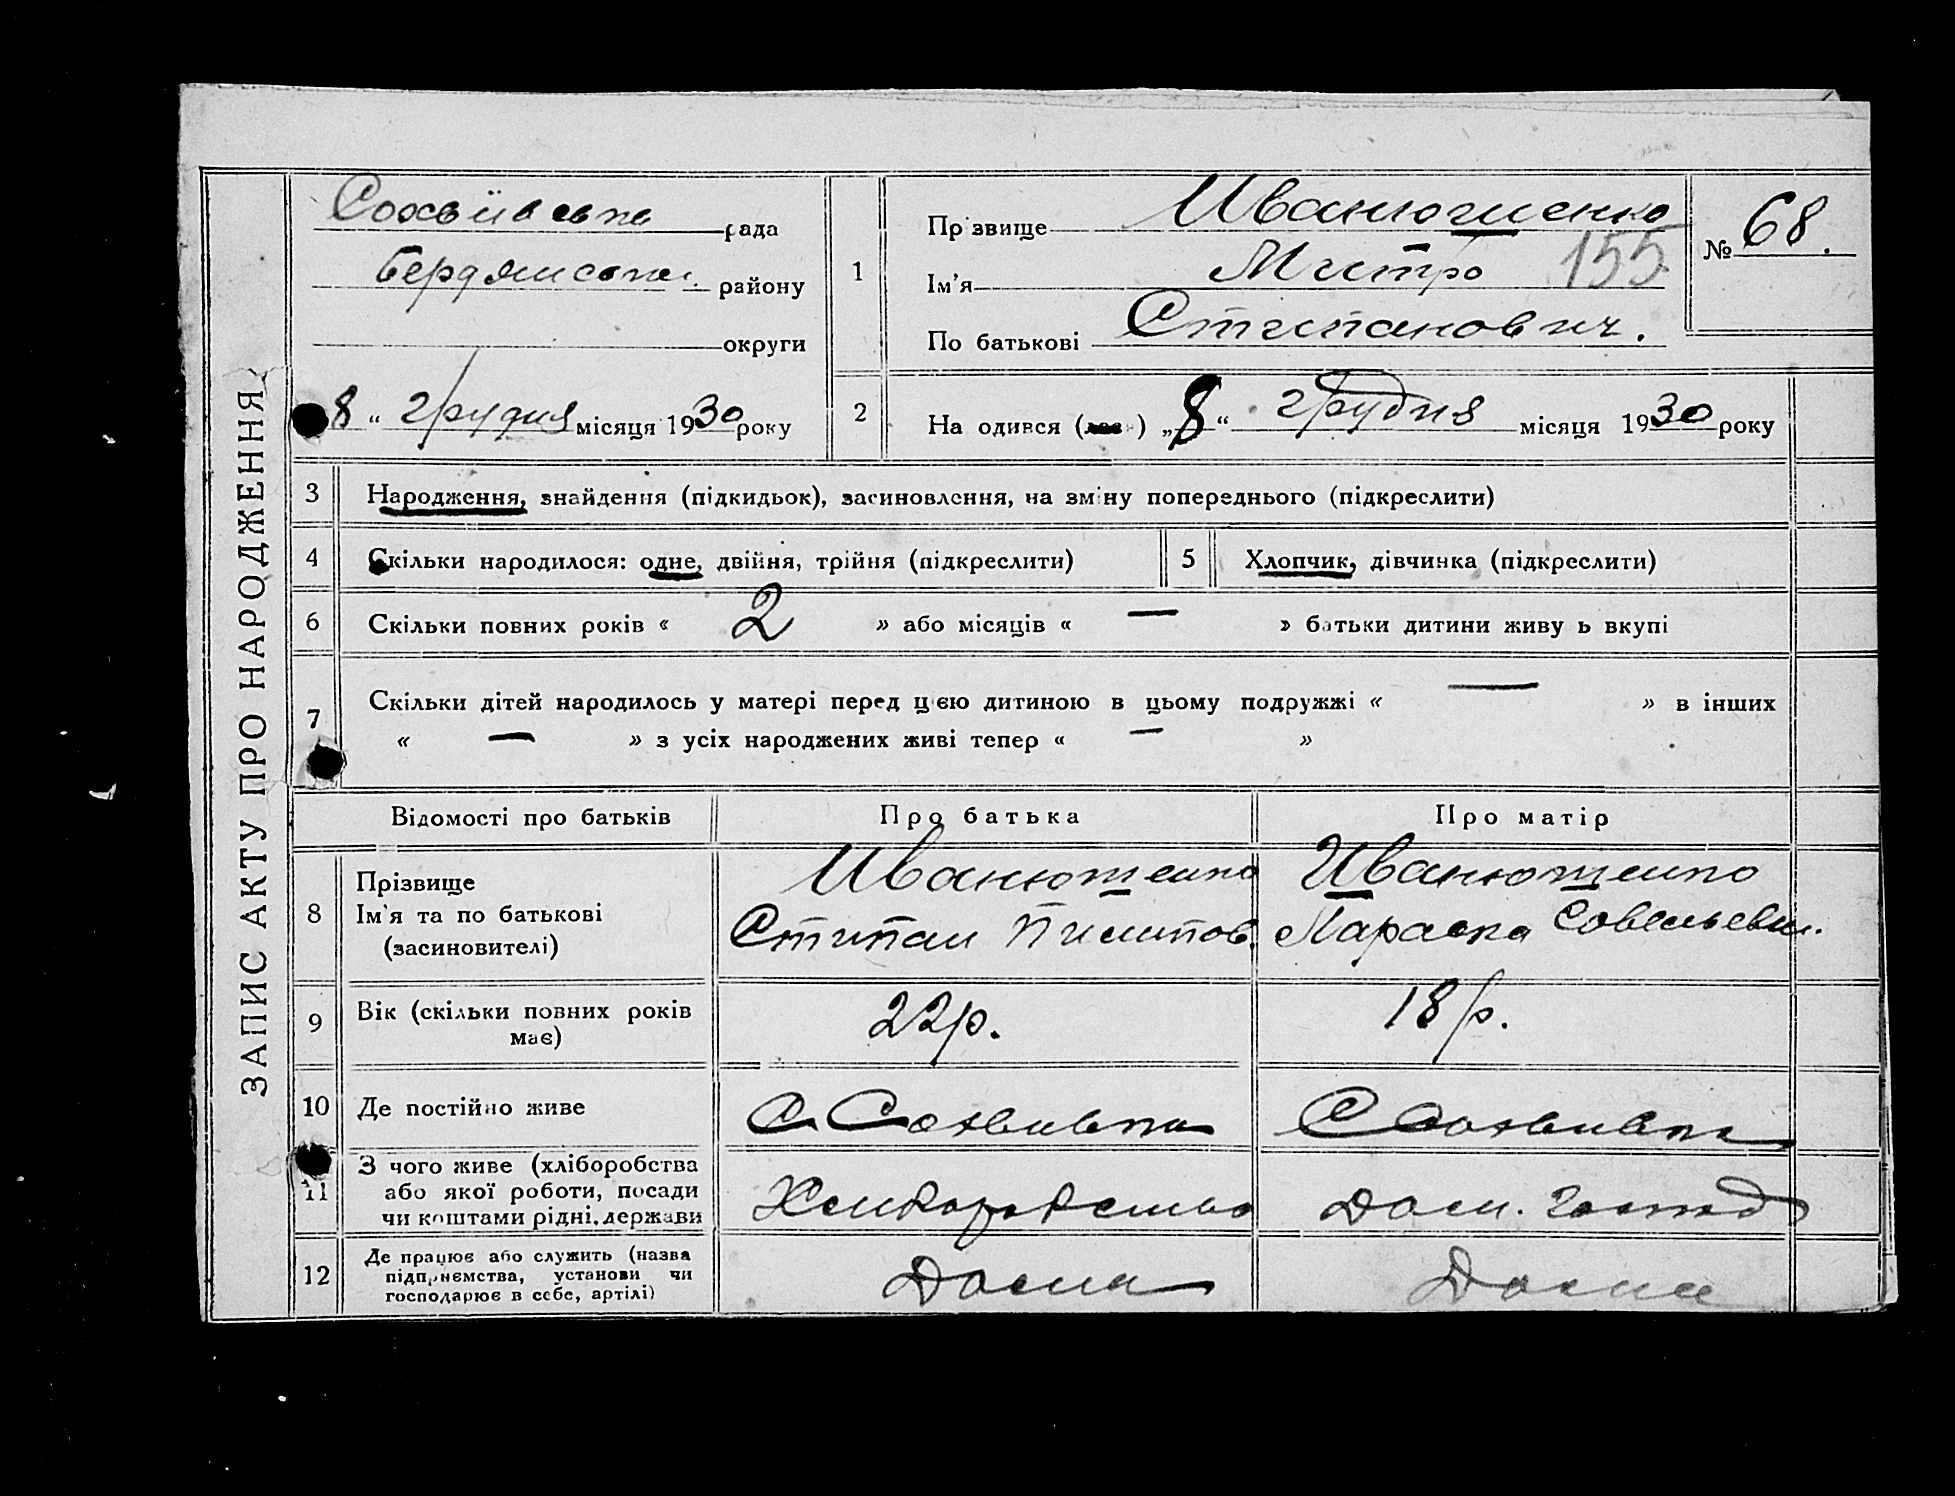 ЗАПИС АКТУ ПРО НАРОДЖЕННЯ
рада
Бердянськ. району
округи
8 “ грудня місяця 1930 року
1
Прізвище Иванюшенко
Ім'я Митро 155
По батькові Стипанович.
№ 68.
2 Народився (лас) „8“ грудня місяця 1930 року
3 Народження, знайдення (підкидьок), засиновлення, на зміну попереднього (підкреслити)
4 Скільки народилося: одне, двійня, трійня (підкреслити) 5 Хлопчик, дівчинка (підкреслити)
6 Скільки повних років « 2 » або місяців « — » батьки дитини живуть вкупі
7 Скільки дітей народилось у матері перед цією дитиною в цьому подружжі « — » в інших
« — » з усіх народжених живі тепер « — »
Відомості про батьків Про батька Про матір
8 Прізвище
Ім'я та по батькові
(засиновителі)
Иванюшенко
Стипан Пилипов.
Иванюшенко
Параска Совельевн.
9 Вік (скільки повних років
має)
22 р. 18 р.
10 Де постійно живе
11 З чого живе (хліборобства
або якої роботи, посади
чи коштами рідні, держави
Хлиборобство Дом. господ
12 Де працює або служить (назва
підприємства, установи чи
господарює в себе, артілі)
Дома Дома